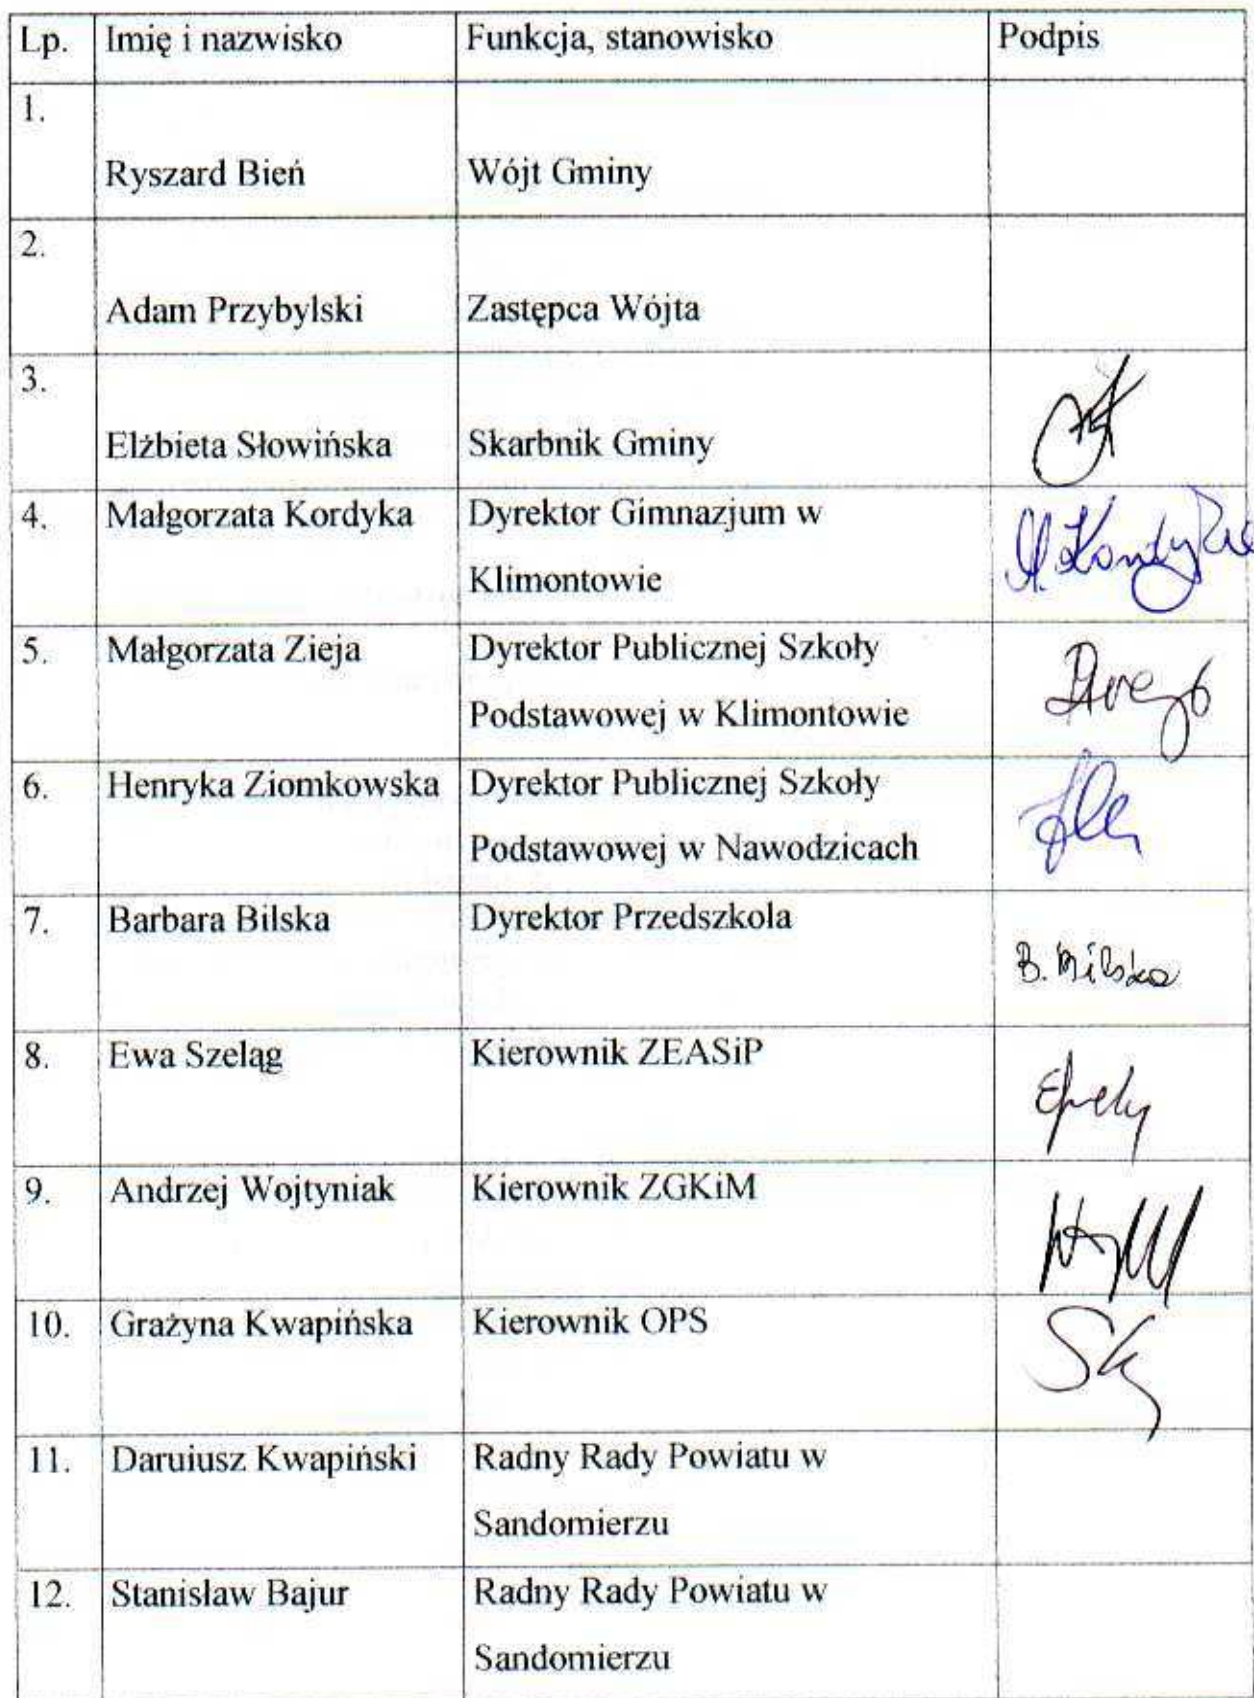 Lp. Imię i nazwisko Funkcja, stanowisko Podpis
1.
Ryszard Bień Wójt Gminy
2.
Adam Przybylski Zastępca Wójta
3.
Elżbieta Słowińska Skarbnik Gminy
4. Małgorzata Kordyka Dyrektor Gimnazjum w
Klimontowie M. Kordyka
5. Małgorzata Zieja Dyrektor Publicznej Szkoły
Podstawowej w Klimontowie
6. Henryka Ziomkowska Dyrektor Publicznej Szkoły
Podstawowej w Nawodzicach
7. Barbara Bilska Dyrektor Przedszkola
B. Bilska
8. Ewa Szeląg Kierownik ZEASiP
9. Andrzej Wojtyniak Kierownik ZGKiM
10. Grażyna Kwapińska Kierownik OPS
11. Daruiusz Kwapiński Radny Rady Powiatu w
Sandomierzu
12. Stanisław Bajur Radny Rady Powiatu w
Sandomierzu